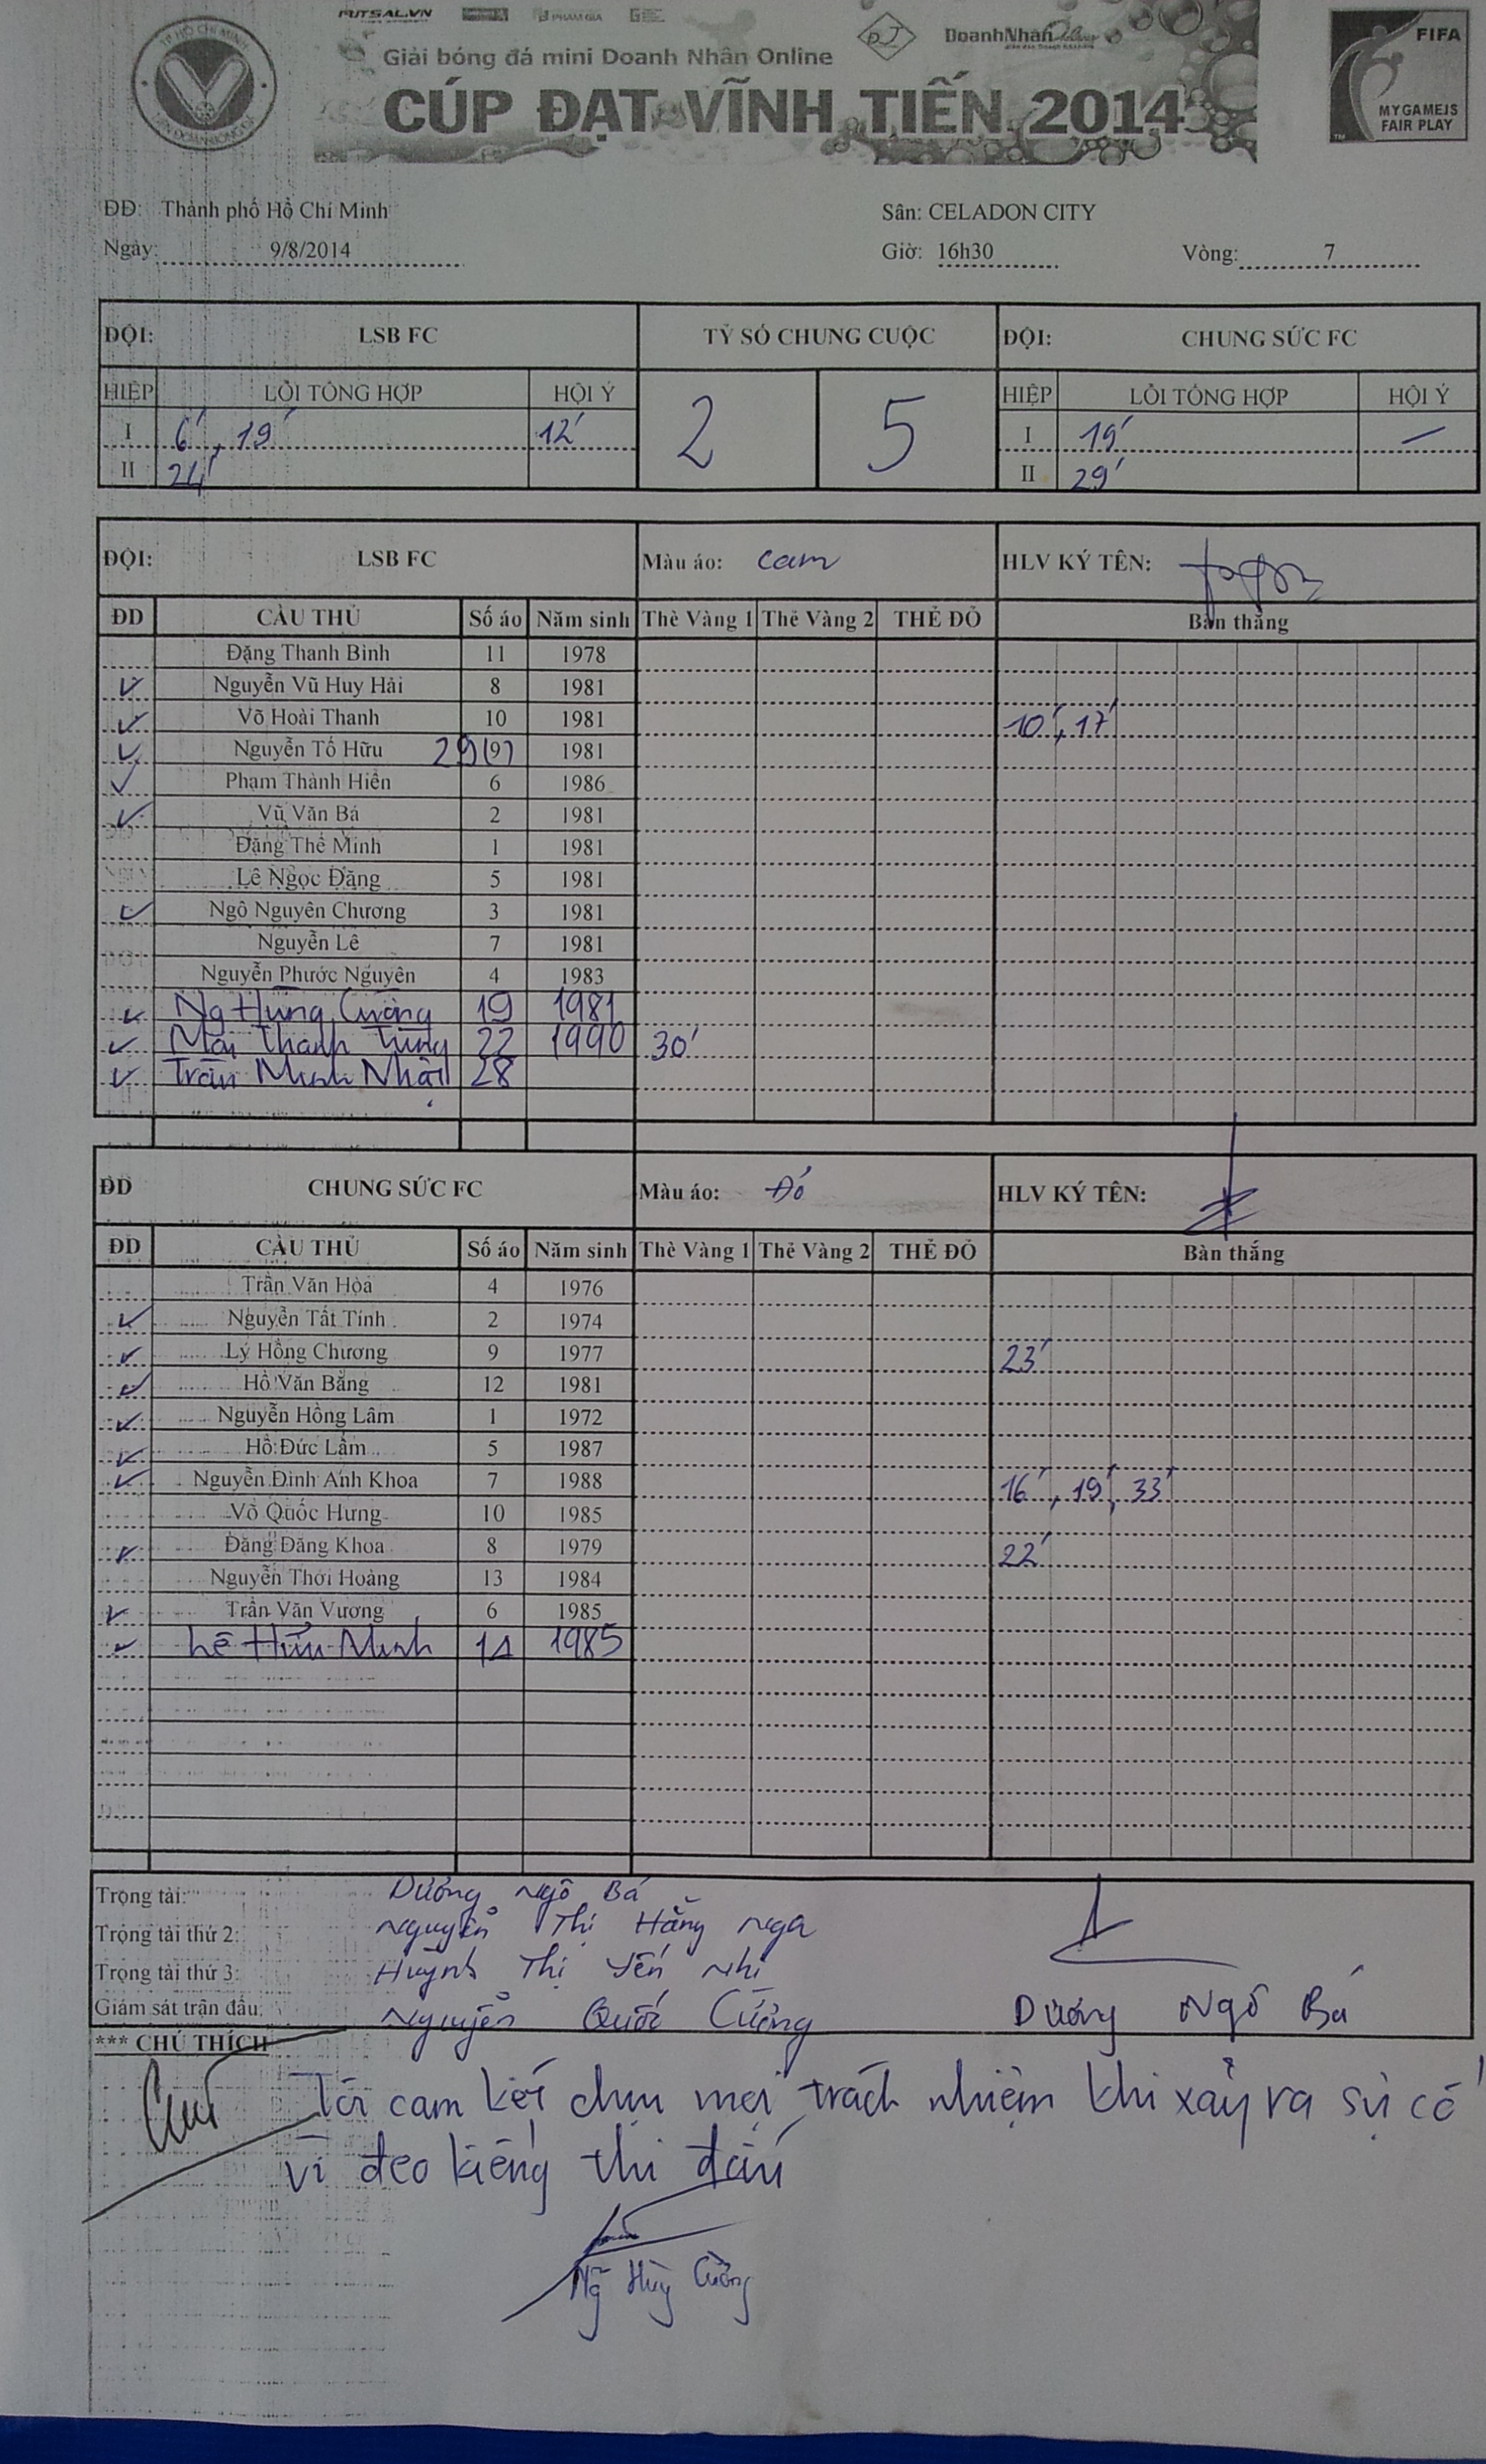 FUTSAL.VN
PHAM GIA
DoanhNhân
TP HỒ CHÍ MINH
Giải bóng đá mini Doanh Nhân Online
CÚP ĐẠT VĨNH TIẾN 2014
FIFA
MY GAME IS
FAIR PLAY
ĐĐ: Thành phố Hồ Chí Minh Sân: CELADON CITY
Ngày: 9/8/2014 Giờ: 16h30 Vòng: 7
ĐỘI: LSB FC TỶ SỐ CHUNG CUỘC ĐỘI: CHUNG SỨC FC
HIỆP LỖI TỔNG HỢP HỘI Ý 2 5 HIỆP LỖI TỔNG HỢP HỘI Ý
I 6', 19' 12' I 19' —
II 24' II 29'
ĐỘI: LSB FC Màu áo: Cam HLV KÝ TÊN:
ĐD CẦU THỦ Số áo Năm sinh Thẻ Vàng 1 Thẻ Vàng 2 THẺ ĐỎ Bàn thắng
Đặng Thanh Bình 11 1978
✓ Nguyễn Vũ Huy Hải 8 1981
✓ Võ Hoài Thanh 10 1981 10', 17'
✓ Nguyễn Tố Hữu 29 (9) 1981
✓ Phạm Thành Hiền 6 1986
✓ Vũ Văn Bá 2 1981
Đặng Thế Minh 1 1981
Lê Ngọc Đặng 5 1981
✓ Ngô Nguyên Chương 3 1981
Nguyễn Lê 7 1981
Nguyễn Phước Nguyên 4 1983
✓ Ng Hùng Cường 19 1981
✓ Mai Thanh Tùng 22 1990 30'
✓ Trần Minh Nhật 28
ĐD CHUNG SỨC FC Màu áo: Đỏ HLV KÝ TÊN:
ĐD CẦU THỦ Số áo Năm sinh Thẻ Vàng 1 Thẻ Vàng 2 THẺ ĐỎ Bàn thắng
Trần Văn Hòa 4 1976
✓ Nguyễn Tất Tính 2 1974
✓ Lý Hồng Chương 9 1977 23'
✓ Hồ Văn Bằng 12 1981
✓ Nguyễn Hồng Lâm 1 1972
✓ Hồ Đức Lắm 5 1987
✓ Nguyễn Đình Anh Khoa 7 1988 16', 19', 33'
Võ Quốc Hưng 10 1985
✓ Đặng Đăng Khoa 8 1979 22'
Nguyễn Thới Hoàng 13 1984
✓ Trần Văn Vương 6 1985
✓ Lê Hữu Minh 14 1985
Trọng tài: Dương Ngô Bá
Trọng tài thứ 2: Nguyễn Thị Hằng Nga
Trọng tài thứ 3: Huỳnh Thị Yến Nhi
Giám sát trận đấu: Nguyễn Quốc Cường Dương Ngô Bá
*** CHÚ THÍCH
Tôi cam kết chịu mọi trách nhiệm khi xảy ra sự cố
vì đeo kiếng thi đấu
Ng Hùng Cường